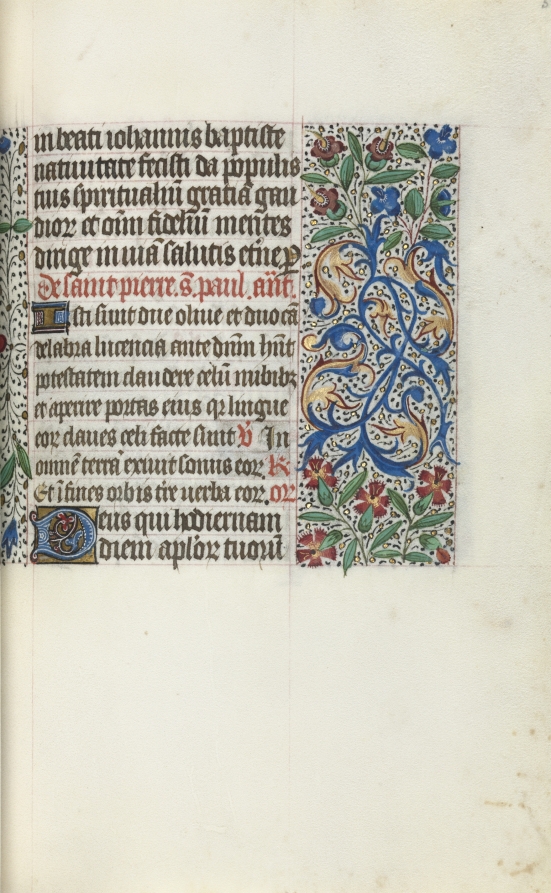 in beati iohannis baptiste
natiuitate fecisti da populis
tuis spiritualiū gratiā gau
dioꝝ et oīm fideliū mentes
dirige in uiā salutis et̄ne ꝑ
De saint pierre. s̄. paul. an̄t.
Isti sunt due oliue et duo cā
delabra lucencia ante dn̄m hn̄t
potestatem claudere celū nubibꝫ
et aperire portas eius qꝛ lingue
eoꝝ claues celi facte sunt ℣ In
omnem̄ terrā exiuit sonus eoꝝ ℟
Et ī fines orbis tr̄e uerba eoꝝ oꝝ
Deus qui hodiernam
diem apl'oꝝ tuorū